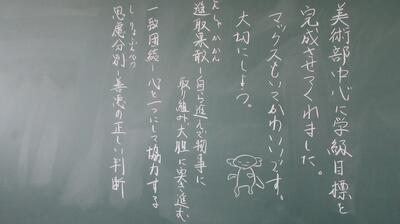 美術部中心に学級目標を
完成させてくれました。
マックスもいてかわいいです。
大切にしよう。
進取果敢－自ら進んで物事に
取り組み大胆に突き進む
一致団結－心を一つにして協力する
しりょふんべつ
思慮分別－善悪の正しい判断